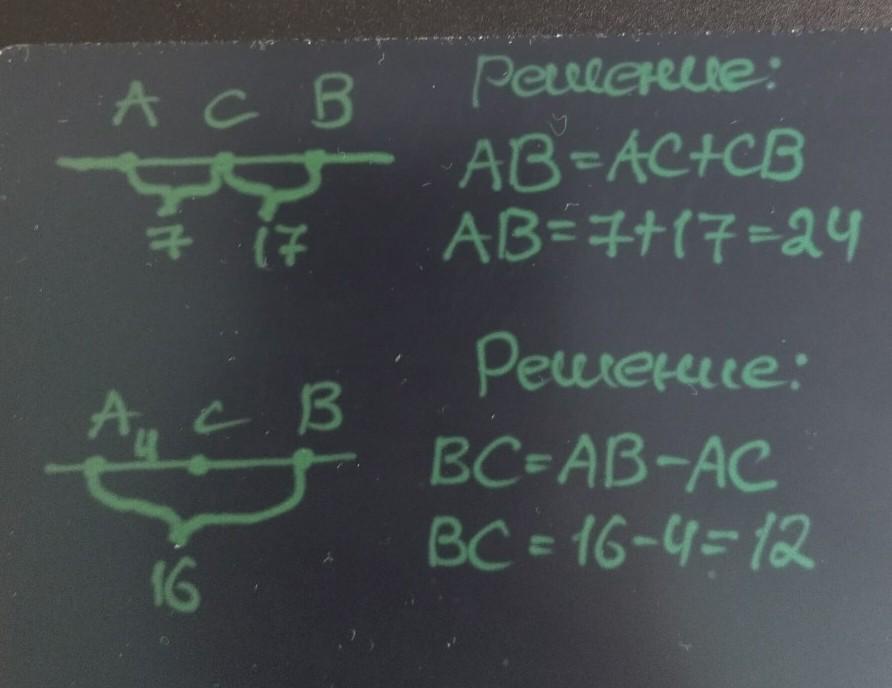 A C B
7 17
Решение:
AB=AC+CB
AB=7+17=24
A 4 C B
16
Решение:
BC=AB-AC
BC=16-4=12